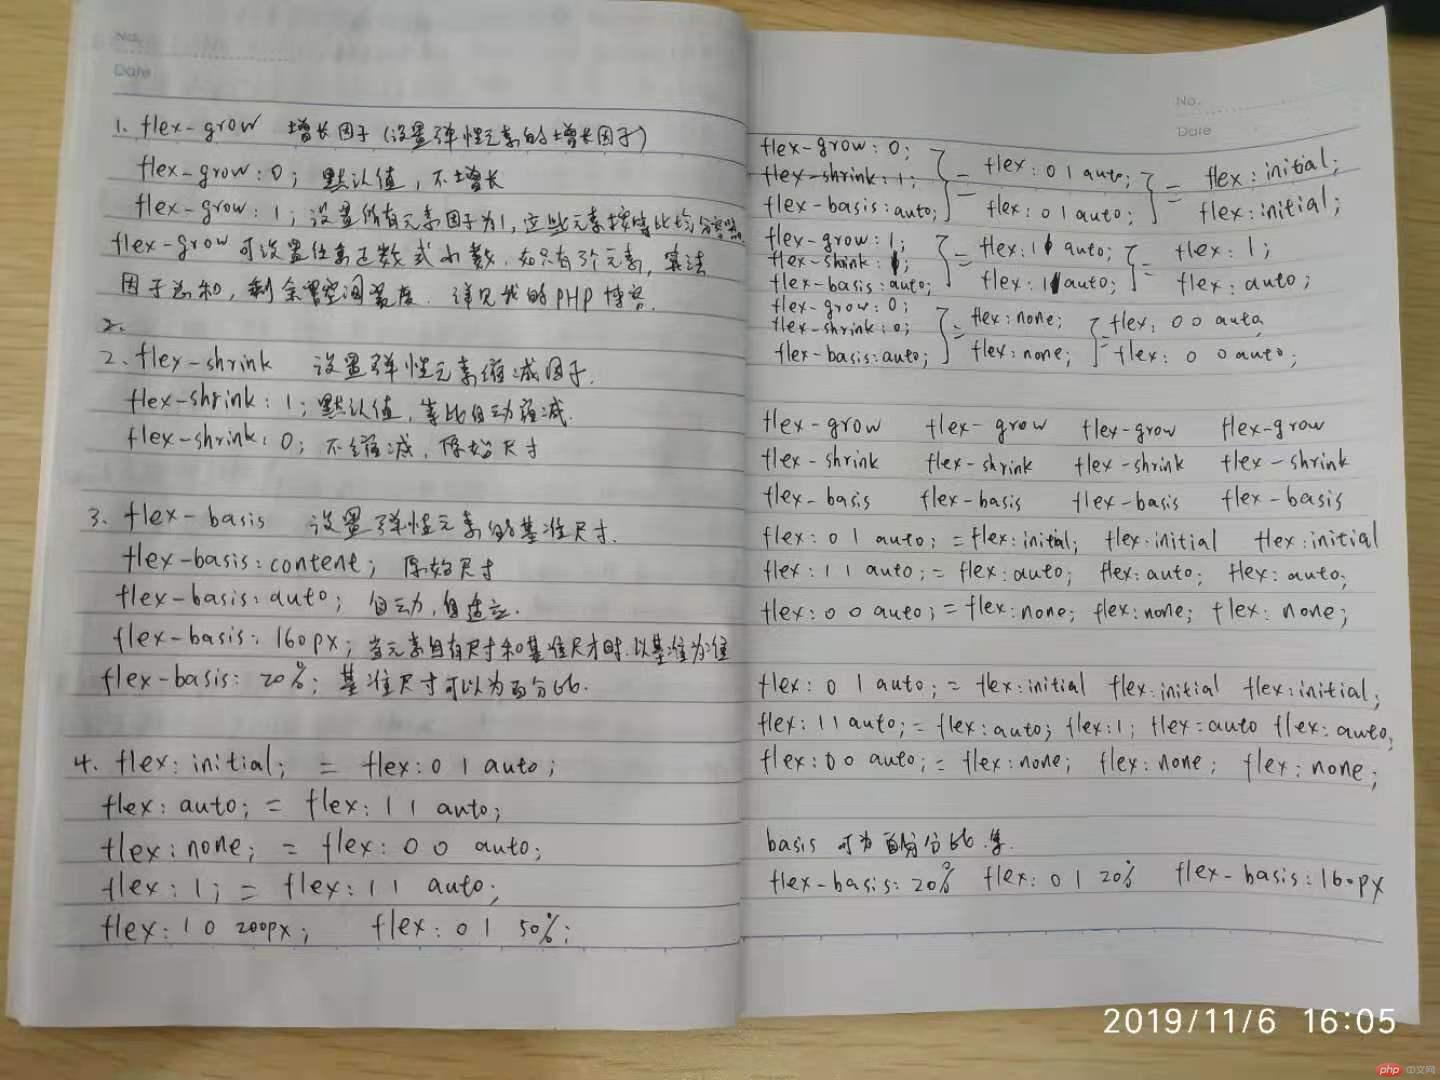 No.
Date
1. flex-grow 增长因子(设置弹性元素的增长因子)
flex-grow:0; 默认值,不增长
flex-grow:1;设置所有元素因子为1,这些元素按等比均分
flex-grow可设置任意正数或小数.如只有3个元素,
因子总和,剩余空间宽度.详见我的PHP博客.
2.
2. flex-shrink 设置弹性元素缩减因子.
flex-shrink:1;默认值,等比自动缩减.
flex-shrink:0;不缩减,原始尺寸
3. flex-basis 设置弹性元素的基准尺寸.
flex-basis:content; 原始尺寸
flex-basis:auto; 自动,自适应.
flex-basis:160px;当元素自有尺寸和基准尺寸时.以基准为准
flex-basis:20%;基准尺寸可以为百分比.
4. flex:initial; = flex:0 1 auto;
flex:auto; = flex:1 1 auto;
flex:none; = flex:0 0 auto;
flex:1; = flex:1 1 auto;
flex:1 0 200px; flex:0 1 50%;
No.
Date
flex-grow:0; flex:0 1 auto; flex:initial;
flex-shrink:1; = =
flex-basis:auto; flex:0 1 auto; flex:initial;
flex-grow:1; flex:1 1 auto; flex:1;
flex-shink:1; = =
flex-basis:auto; flex:1 1 auto; flex:auto;
flex-grow:0; flex:none; flex:0 0 auto
flex-shrink:0; = =
flex-basis:auto; flex:none; flex:0 0 auto;
flex-grow flex-grow flex-grow flex-grow
flex-shrink flex-shrink flex-shrink flex-shrink
flex-basis flex-basis flex-basis flex-basis
flex:0 1 auto; =flex:initial; flex:initial flex:initial
flex:1 1 auto;= flex:auto; flex:auto; flex:auto;
flex:0 0 auto;=flex:none; flex:none; flex:none;
flex:0 1 auto;= flex:initial flex:initial flex:initial;
flex:1 1 auto;=flex:auto; flex:1; flex=auto flex:auto;
flex:0 0 auto;=flex:none; flex:none; flex:none;
basis 可为百分比.
flex-basis:20% flex:0 1 20% flex-basis:160px
2019/11/6 16:05
php 中文网